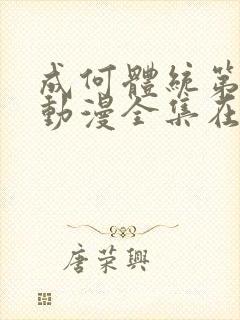 成何體統第
動漫全集在
唐荣興